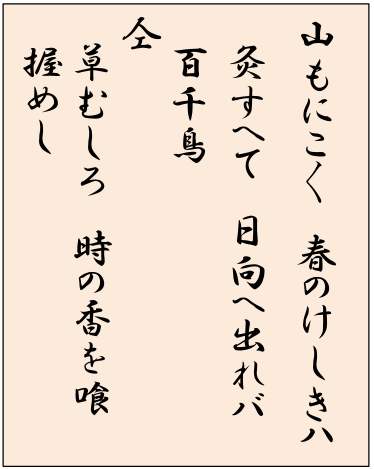 山もにこく　春のけしきハ
灸すへて　日向へ出れバ
百千鳥
仝
草むしろ　時の香を喰
握めし